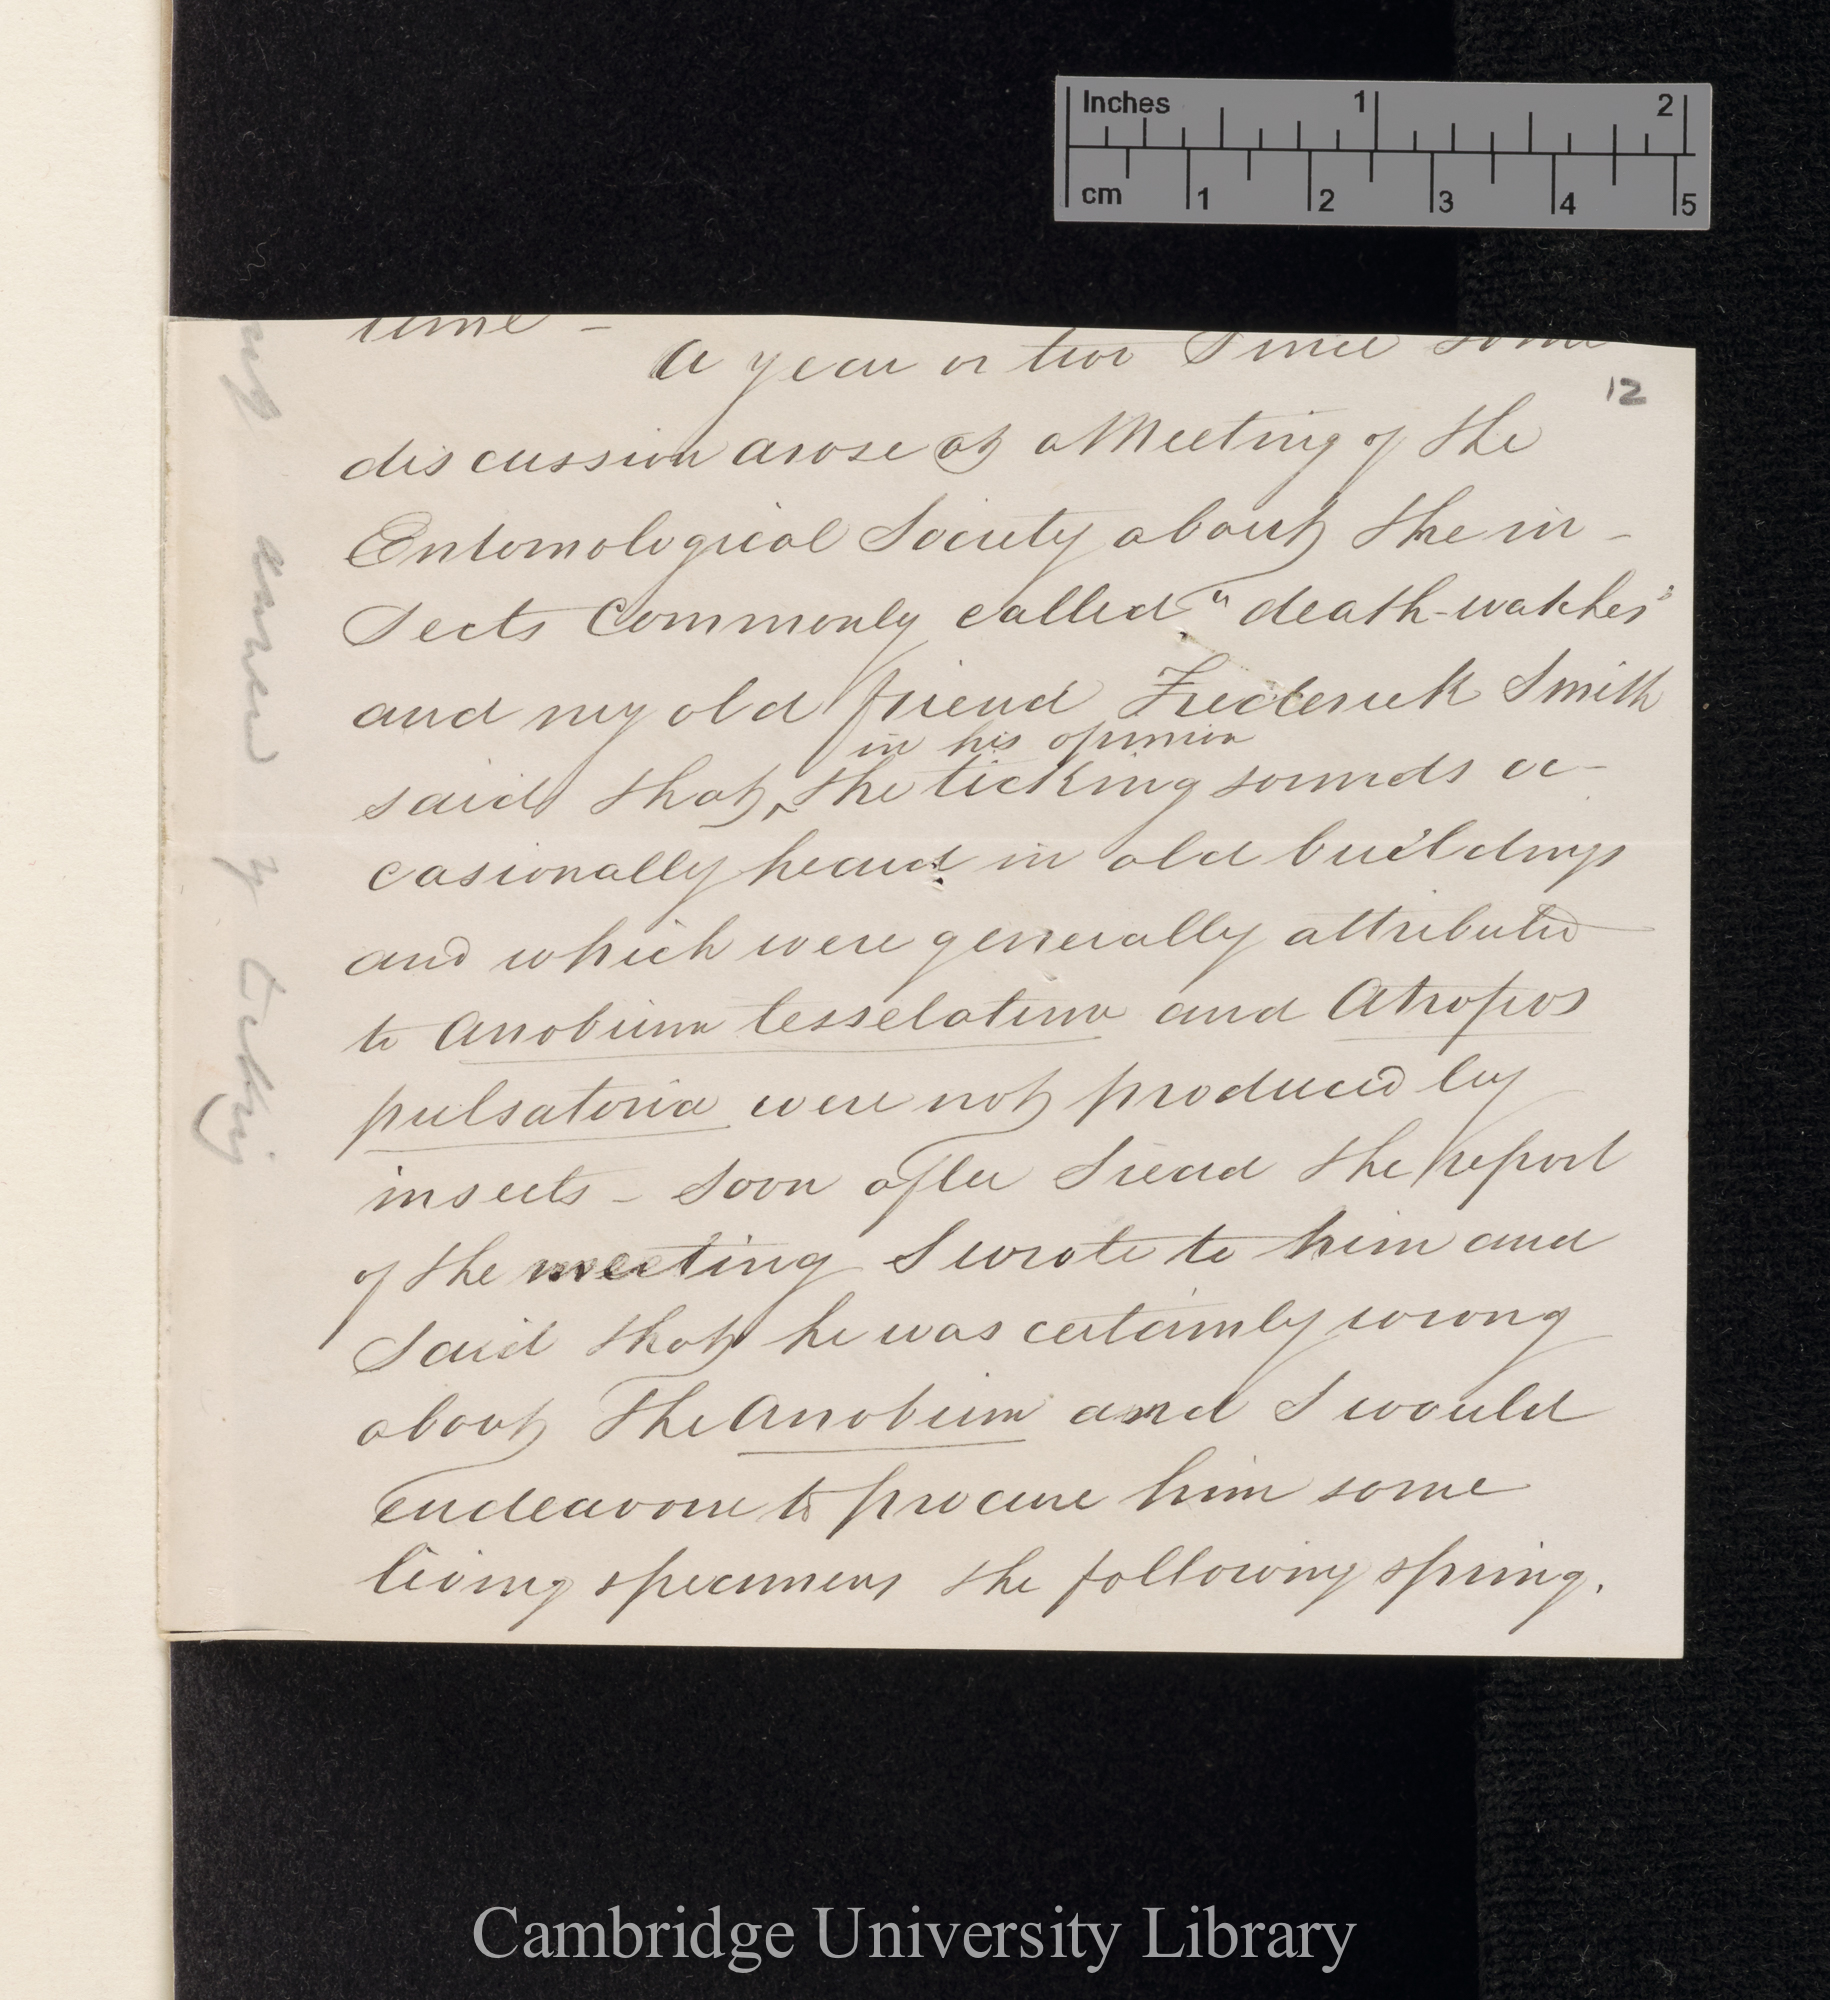 Inches 1 2
cm 1 2 3 4 5
time –
A year or two since some
12
discussion arose at a Meeting of the
Entomological Society about the in-
sects commonly called "death-watches"
and my old friend Frederick Smith
in his opinion
said that ^ the ticking sounds oc-
casionally heard in old buildings
and which were generally attributed
to Anobium tesselatum and Atropos
pulsatoria were not produced by
insects – Soon after I read the report
of the meeting I wrote to him and
said that he was certainly wrong
about the Anobium and I would
endeavour to procure him some
living specimens the following spring.
answer
Cambridge University Library